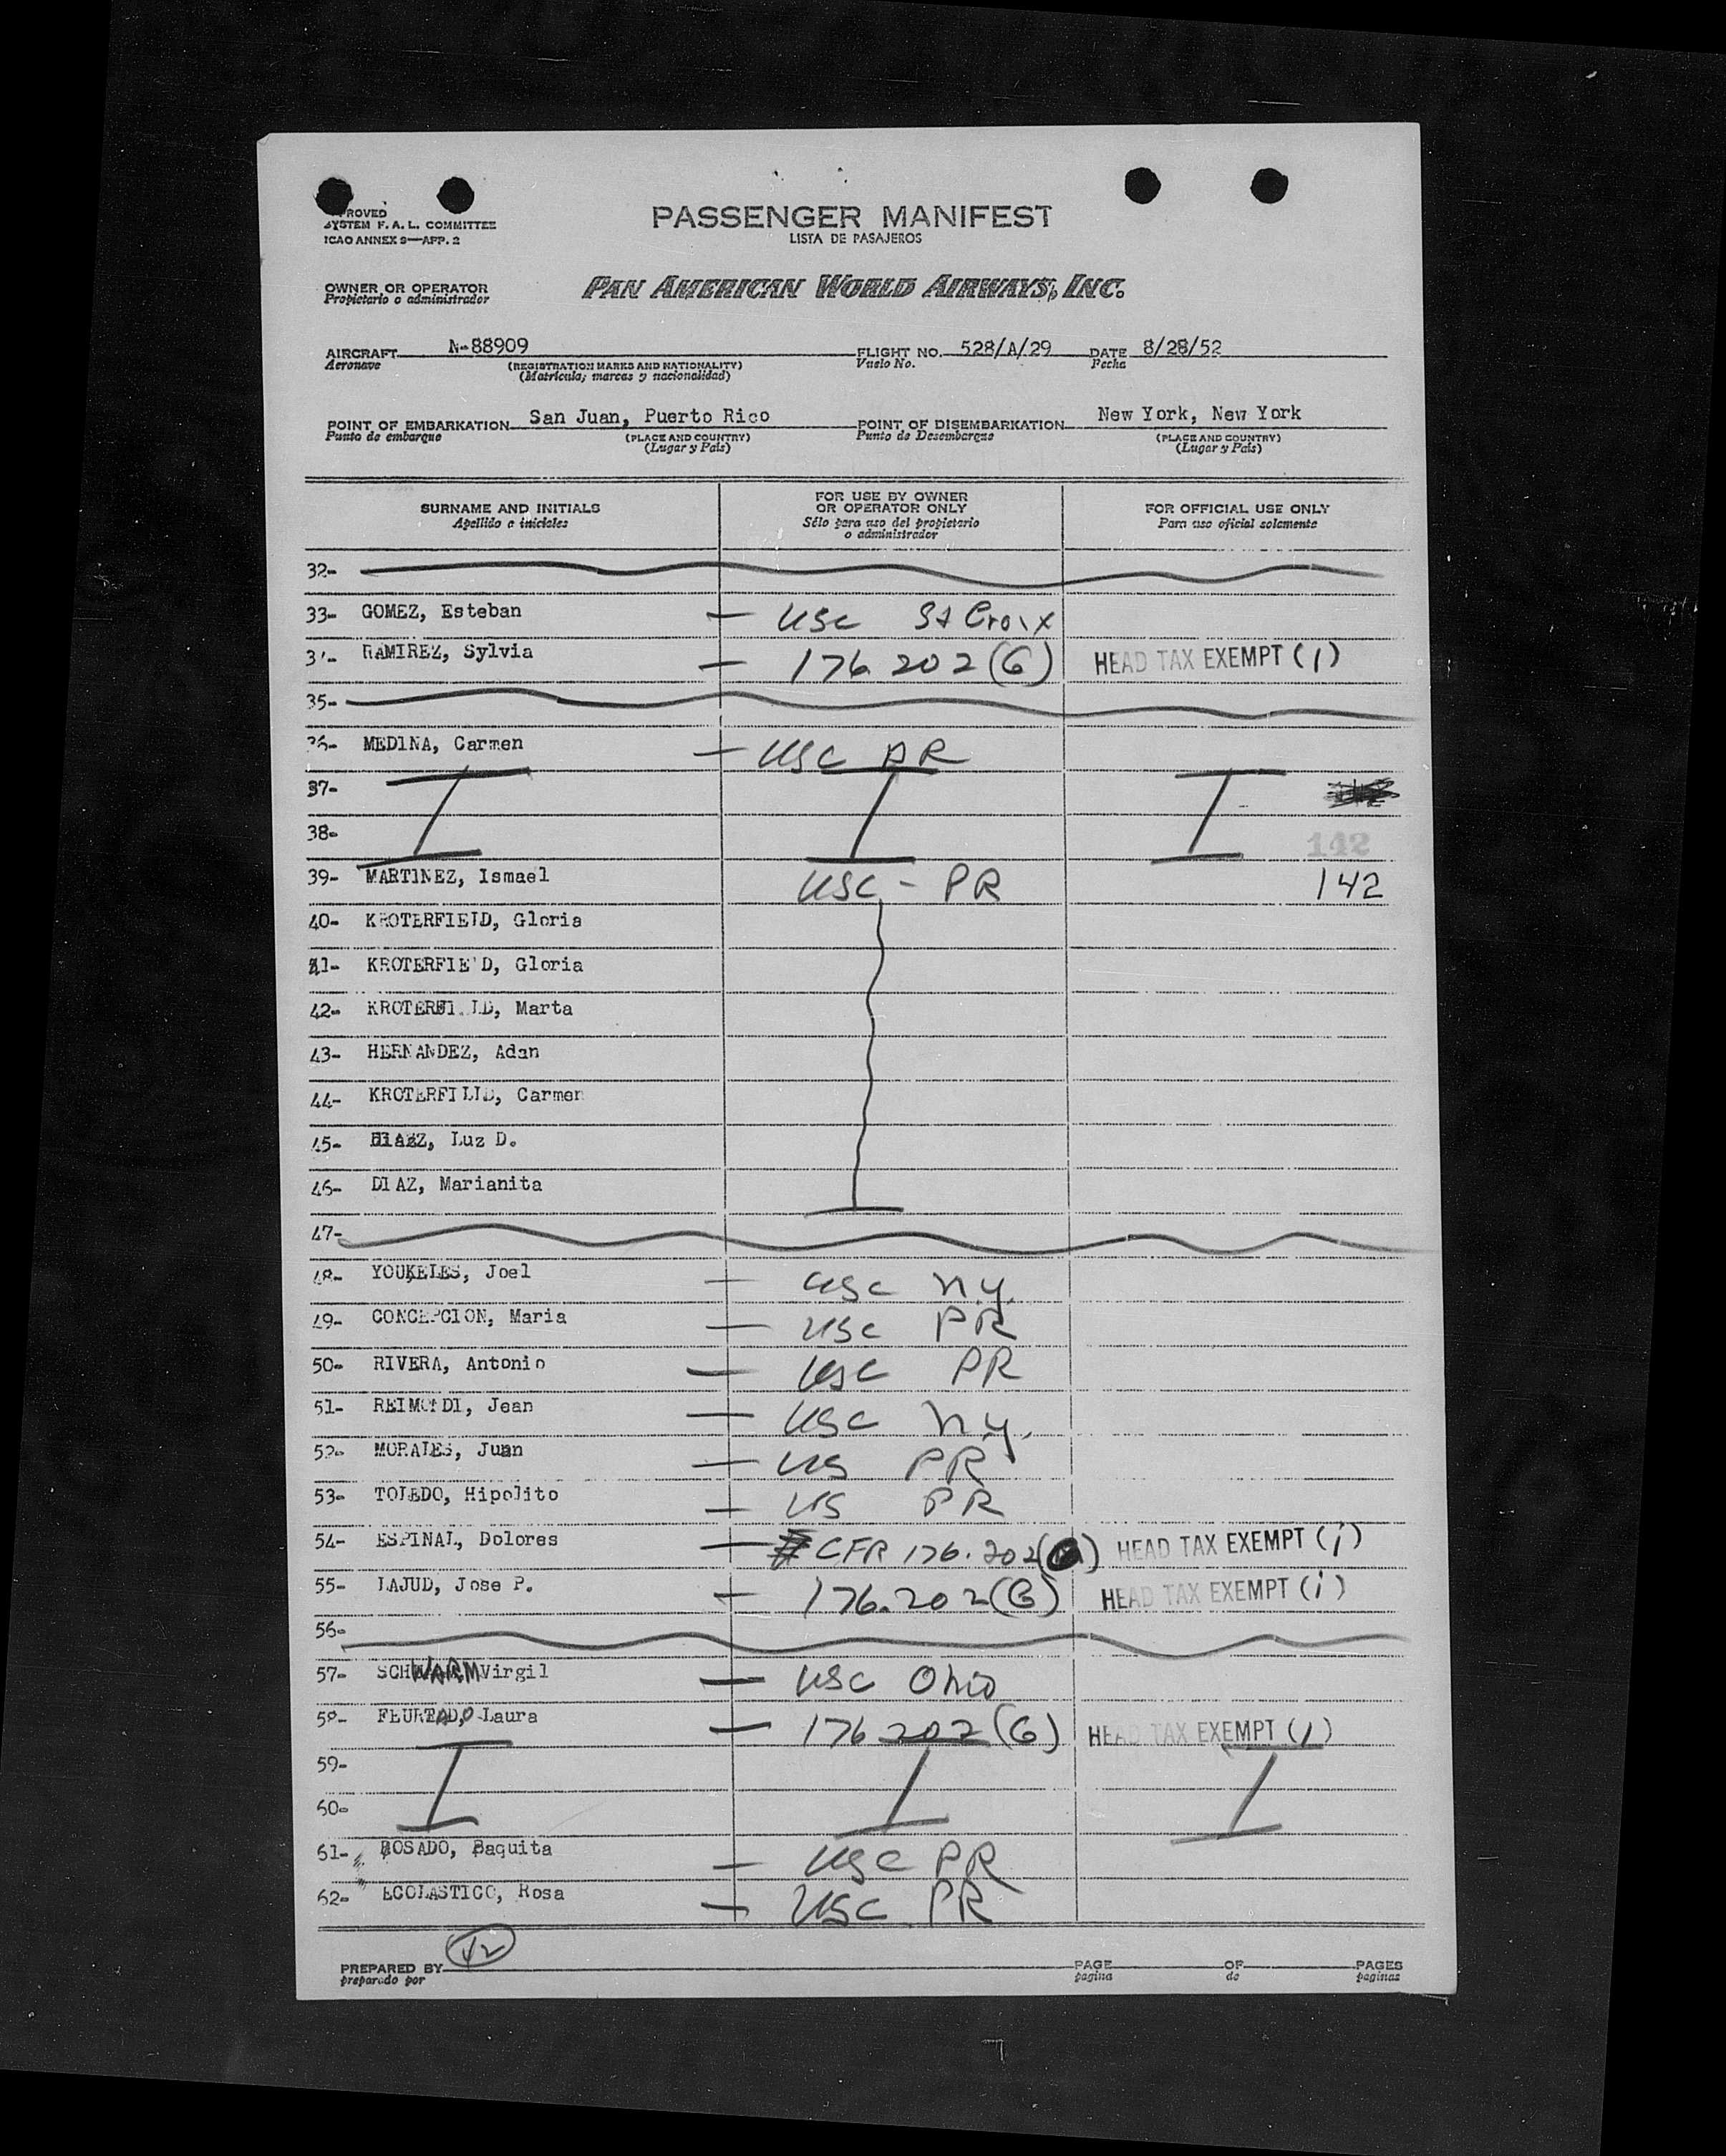 PROVED
SYSTEM F. A. L. COMMITTEE
ICAO ANNEX 9—APP. 2
PASSENGER MANIFEST
LISTA DE PASAJEROS
OWNER OR OPERATOR
Propietario o administrador
PAN AMERICAN WORLD AIRWAYS, INC.
AIRCRAFT N-88909 FLIGHT NO. 528/A/29 DATE 8/28/52
Aeronave (REGISTRATION MARKS AND NATIONALITY) Vuelo No. Fecha
(Matrícula; marcas y nacionalidad)
POINT OF EMBARKATION San Juan, Puerto Rico POINT OF DISEMBARKATION New York, New York
Punto de embarque (PLACE AND COUNTRY) Punto de Desembarque (PLACE AND COUNTRY)
(Lugar y País) (Lugar y País)
SURNAME AND INITIALS FOR USE BY OWNER OR OPERATOR ONLY FOR OFFICIAL USE ONLY
Apellido e iniciales Sólo para uso del propietario o administrador Para uso oficial solamente
32-
33- GOMEZ, Esteban — USC St Croix
34- RAMIREZ, Sylvia — 176.202(G) HEAD TAX EXEMPT (i)
35-
36- MEDINA, Carmen — USC PR
37-
38- 142
39- MARTINEZ, Ismael USC - PR 142
40- KROTERFIELD, Gloria
41- KROTERFIELD, Gloria
42- KROTERFIELD, Marta
43- HERNANDEZ, Adan
44- KROTERFIELD, Carmen
45- Luz D.
46- DIAZ, Marianita
47-
48- YOUKELES, Joel — USC N.Y.
49- CONCEPCION, Maria — USC PR
50- RIVERA, Antonio — USC PR
51- REIMONDI, Jean — USC N.Y.
52- MORALES, Juan — US PR
53- TOLEDO, Hipolito — US PR
54- ESPINAL, Dolores — CFR 176.202( ) HEAD TAX EXEMPT (i)
55- LAJUD, Jose P. — 176.202(G) HEAD TAX EXEMPT (i)
56-
57- SCHWARM Virgil — USC Ohio
58- FEURTADO, Laura — 176 202(G) HEAD TAX EXEMPT (i)
59-
60-
61- ROSADO, Paquita — USC PR
62- ECOLASTICO, Rosa — USC PR
PREPARED BY PAGE OF PAGES
preparado por pagina de paginas